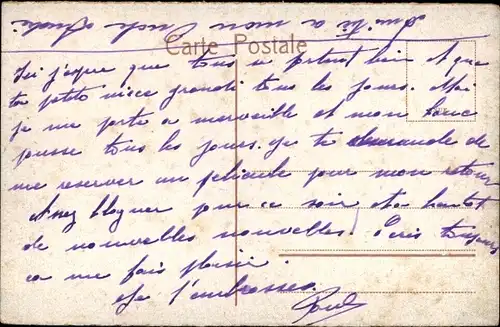 Amitié a mon Oncle André
Carte Postale
Ici j'espère que tous se portent bien et que
ta petite niece grandi tous les jours. Moi
je me porte a merveille et mon bouc
pousse tous les jours. Je te demande de
me reserver un pellicule pour mon retour
Assez bloguer pour ce soir et a bientot
de nouvelles nouvelles. Ecris toujours
ca me fais plaisir.
Je t'embrasse.
Paul